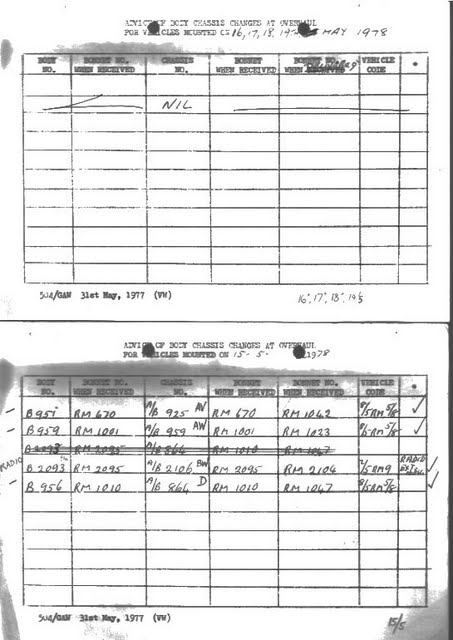 ADVICE OF BODY CHASSIS CHANGES AT OVERHAUL
FOR VEHICLES MOUNTED ON 16, 17, 18, 19 MAY 1978
BODY NO. BONNET NO. WHEN RECEIVED CHASSIS NO. BONNET WHEN RECEIVED BONNET NO. WHEN VEHICLE CODE
NIL
504/GAW 31st May, 1977 (VW)
16', 17', 18', 19/5
ADVICE OF BODY CHASSIS CHANGES AT OVERHAUL
FOR VEHICLES MOUNTED ON 15 - 5 - 1978
BODY NO. BONNET NO. WHEN RECEIVED CHASSIS NO. BONNET WHEN RECEIVED BONNET NO. VEHICLE CODE
B 951 RM 670 A/B 925 AV RM 670 RM 1042 8/5RM 5/8 ✓
B 959 RM 1001 A/B 959 AW RM 1001 RM 1023 8/5RM 5/8 ✓
B 2093 RM 2095 A/B 864 RM 1010 RM 1047
RADIO B 2093 RM 2095 A/B 2106 BW RM 2095 RM 2104 2/5RM9 RADIO ✓
B 956 RM 1010 A/B 864 D RM 1010 RM 1047 8/5RM 5/8 ✓
504/GAW 31st May, 1977 (VW)
15/5